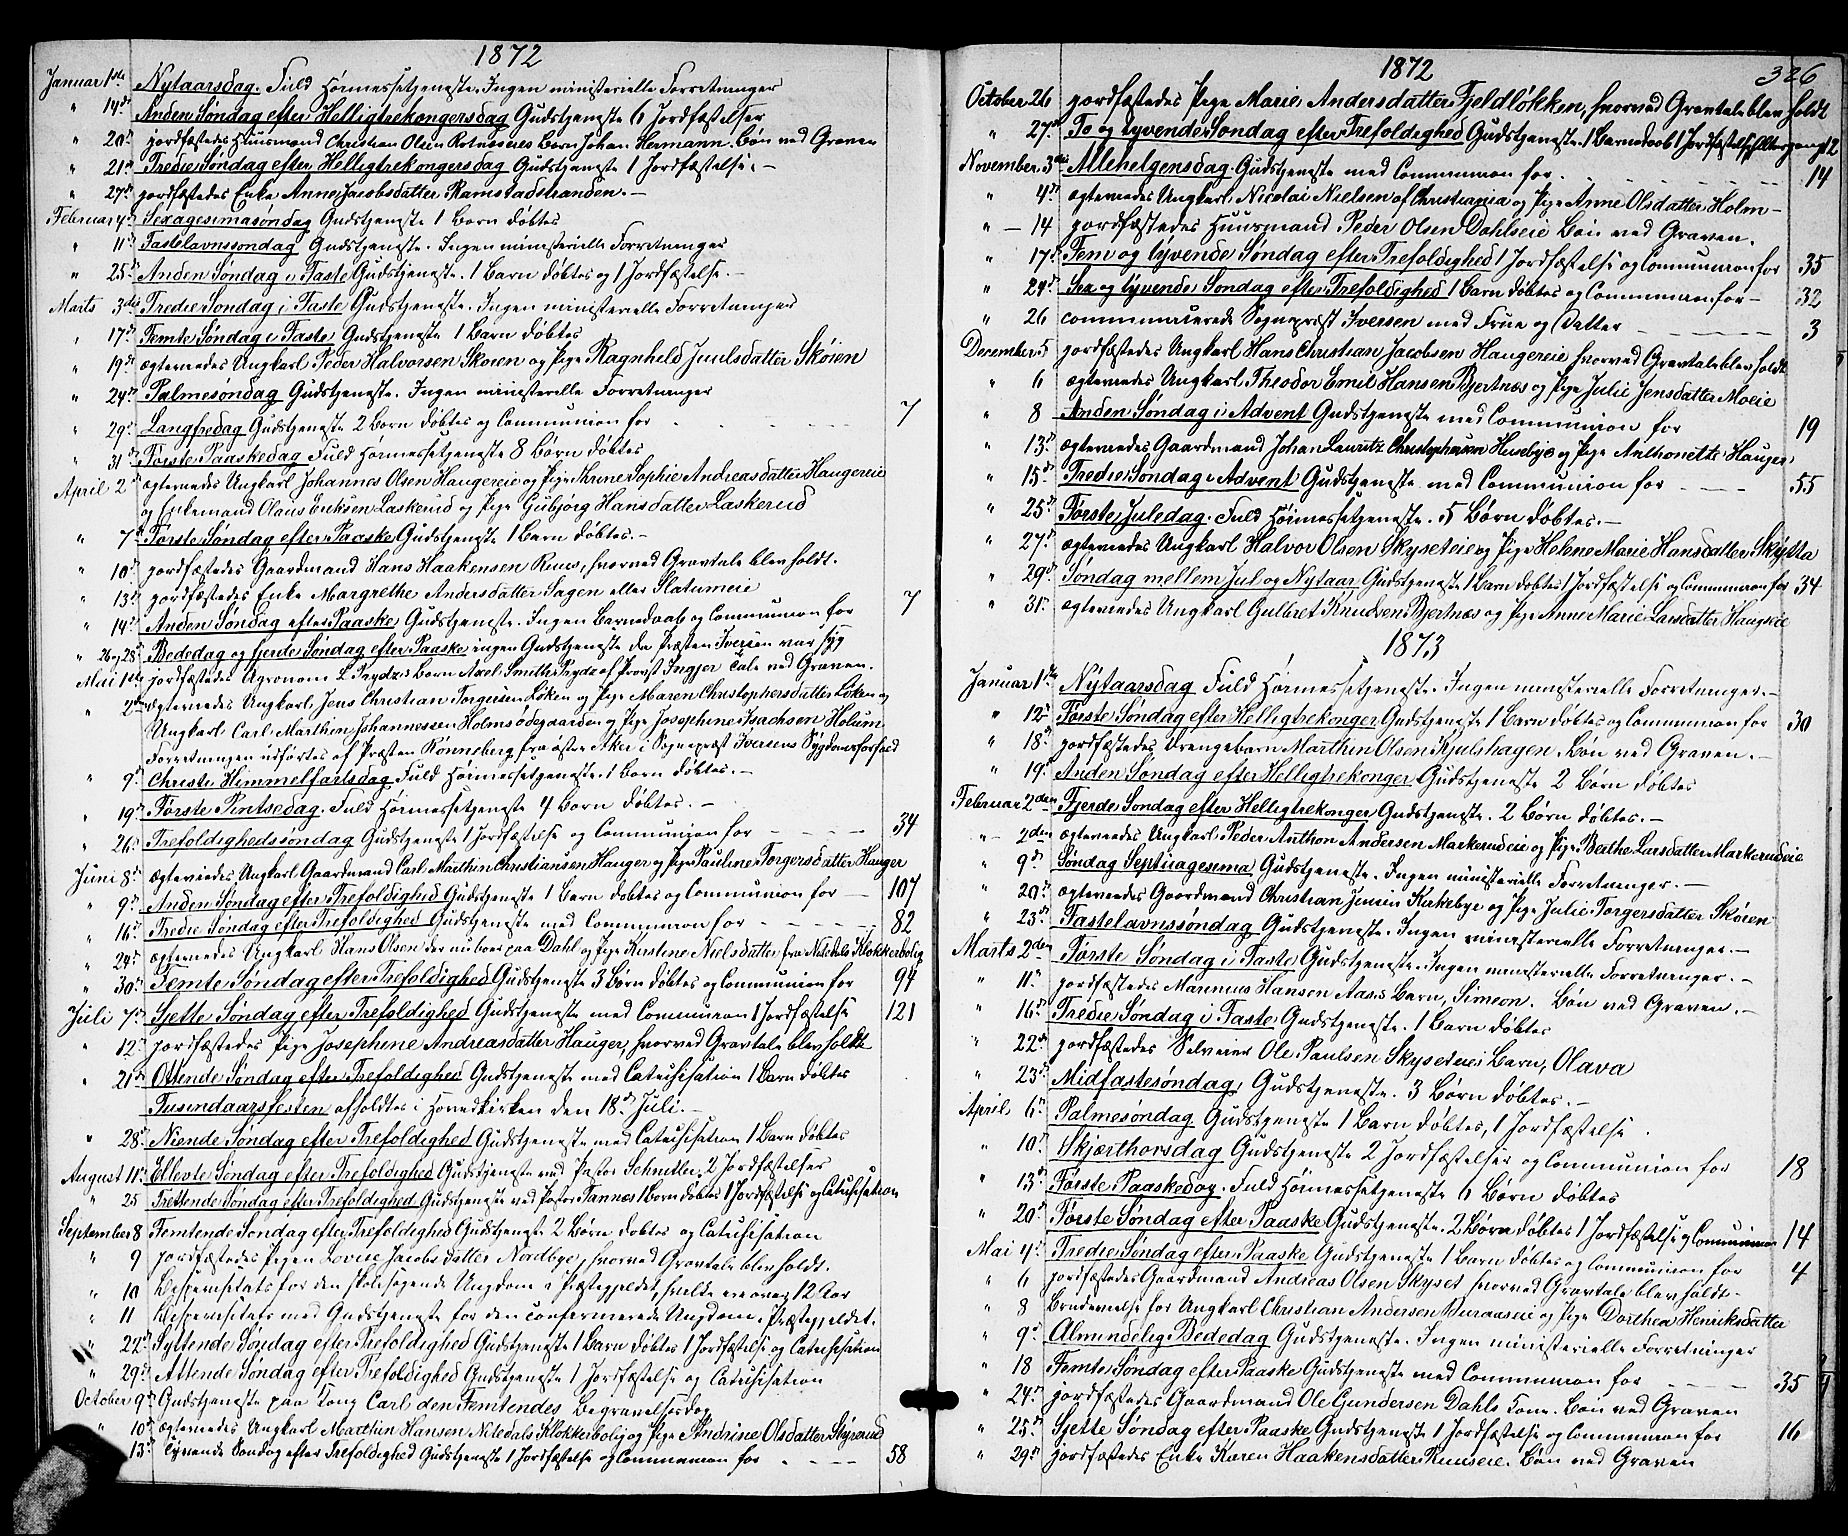 1872
Januar 1ste Nytaarsdag. Fuld Høimessetjeneste. Ingen ministerielle Forretninger
" 14d. Anden Søndag efter Helligtrekongersdag Gudstjeneste 6 Jordfæstelser
" 20d. jordfæstedes Huusmand Christian Olsen Rotnæseies Barn Johan Hermann. Bøn ved Graven
" 21d. Tredie Søndag efter Helligtrekongersdag Gudstjeneste 1 Jordfæstelse. –
" 27d. jordfæstedes Enke Anne Jacobsdatter Ramstadstranden. –
Februar 4d. Sexagesimasøndag Gudstjeneste 1 Barn døbtes
" 11d. Fastelavnssøndag Gudstjeneste. Ingen ministerielle Forretninger
" 25d. Anden Søndag i Faste Gudstjeneste. 1 Barn døbtes og 1 Jordfæstelse. –
Marts 3die Tredie Søndag i Faste Gudstjeneste. Ingen ministerielle Forretninger
" 17d. Femte Søndag i Faste Gudstjeneste 1 Barn døbtes
" 19d. ægteviedes Ungkarl Peder Halvorsen Skøien og Pige Ragnhild Juulsdatter Skøien
" 24d. Palmesøndag Gudstjeneste. Ingen ministerielle Forretninger
" 29d. Langfredag Gudstjeneste 2 Børn døbtes og Communion for 7
" 31d. Første Paaskedag Fuld Høimessetjeneste 8 Børn døbtes
April 2d. ægteviedes Ungkarl Johannes Olsen Haugereie og Pige Karine Sophie Andreasdatter Haugereie
og Enkemand Olaus Eriksen Laskerud og Pige Gubjørg Hansdatter Laskerud
" 7d. Første Søndag efter Paaske Gudstjeneste 1 Barn døbtes. –
" 10d. jordfæstedes Gaardmand Hans Haakensen Ruus, hvorved Gravtale blev holdt.
" 13d. jordfæstedes Enke Margrethe Andersdatter Sagen eller Slatumeie
" 14d. Anden Søndag efter Paaske Gudstjeneste. Ingen Barnedaab og Communion for 7
" 26 og 28d. Bededag og fjerde Søndag efter Paaske ingen Gudstjeneste da Præsten Iversen var syg
Mai 1ste jordfæstedes Agronom L Frydzis Barn Axel Smith Frydz af Provst Ingier Tale ved Graven.
" 2den ægteviedes Ungkarl Jens Christian Torgersen Løken og Pige Maren Christophersdatter Løken og
Ungkarl Carl Marthin Johannessen Holmsødegaarden og Pige Josephine Isachsen Holum
Forretningen udførtes af Præsten Rönneberg fra østre Aker i Sognepræst Iversens Sygdomsforfald
" 9d. Christi Himmelfartsdag Fuld Høimessetjeneste. 1 Barn døbtes. –
" 19d. Første Pintsedag. Fuld Høimessetjeneste 4 Børn døbtes. –
" 26d. Trefoldighedssøndag Gudstjeneste 1 Jordfæstelse og Communion for 34
Juni 8d. ægteviedes Ungkarl Gaardmand Carl Marthin Christiansen Hauger og Pige Pauline Torgersdatter Hauger
" 9d. Anden Søndag efter Trefoldighed Gudstjeneste 1 Barn døbtes og Communion for 107
" 16d. Tredie Søndag efter Trefoldighed Gudstjeneste med Communion for 82
" 24d. ægteviedes Ungkarl Hans Olsen der nu boer paa Dahl og Pige Kirstine Nielsdatter fra Nitedals Klokkerbolig
" 30d. Femte Søndag efter Trefoldighed Gudstjeneste 3 Børn døbtes og Communion for 94
Juli 7d. Sjette Søndag efter Trefoldighed Gudstjeneste med Communion 1 Jordfæstelse 121
" 12d. jordfæstedes Pige Josephine Andreasdatter Hauger, hvorved Gravtale blev holdt
" 21d. Ottende Søndag efter Trefoldighed Gudstjeneste med Catechisation 1 Barn døbtes
Tusindaarsfesten afholdtes i Hovedkirken den 18d. Juli. –
" 28d. Niende Søndag efter Trefoldighed Gudstjeneste med Catechisation 1 Barn døbtes
August 11d. Ellevte Søndag efter Trefoldighed Gudstjeneste ved Pastor Schnitler. 2 Jordfæstelser
" 25 Trettende Søndag efter Trefoldighed Gudstjeneste ved Pastor Fannæs 1 Barn døbtes 1 Jordfæstelse og Catechisation
September 8 Femtende Søndag efter Trefoldighed Gudstjeneste 2 Børn døbtes og Catechisation
" 9 jordfæstedes Pigen Lovise Jacobsdatter Nordbye, hvorved Gravtale blev holdt.
" 10 Bispevisitats for den skolesøgende Ungdom i Præstegjeldet, hvilke ere over 12 Aar
" 11 Bispevisitats med Gudstjeneste for den confirmerede Ungdom i Præstegjeldet.
" 22d. Syttende Søndag efter Trefoldighed Gudstjeneste 1 Barn døbtes 1 Jordfæstelse og Catechisation
" 29d. Attende Søndag efter Trefoldighed Gudstjeneste 1 Jordfæstelse og Catechisation
October 9d. Gudstjeneste paa Kong Carl den Femtendes Begravelsesdag
" 10d. ægteviedes Ungkarl Marthin Hansen Nitedals Klokkerbolig og Pige Andrine Olsdatter Skyrerud
" 13d. Tyvende Søndag efter Trefoldighed Gudstjeneste 1 Jordfæstelse og Communion for 58
1872
326
October 26 jordfæstedes Pige Marie Andersdatter Fjeldløkken, hvorved Gravtale blev holdt
" 27d. To og tyvende Søndag efter Trefoldighed Gudstjeneste. 1 Barnedaab 1 Jordfæstelse, Altergang 12
November 3die Allehelgensdag. Gudstjeneste med Communion for 14
" 4d. ægteviedes Ungkarl Nicolai Nielsen af Christiania og Pige Anne Olsdatter Holm –
" – 14 jordfæstedes Huusmand Peder Olsen Dahlseie Bøn ved Graven.
" 17d. Fem og tyvende Søndag efter Trefoldighed 1 Jordfæstelse og Communion for 35
" 24d. Sex og tyvende Søndag efter Trefoldighed 1 Barn døbtes og Communion for – 32
" 26 communicerede Sognepræst Iversen med Frue og Datter 3
December 5 jordfæstedes Ungkarl Hans Christian Jacobsen Haugereie hvorved Gravtale blev holdt
" 6 ægteviedes Ungkarl Theodor Emil Hansen Bjertnæs og Pige Julie Jensdatter Moeie
" 8 Anden Søndag i Advent Gudstjeneste med Communion for 19
" 13d. ægteviedes Gaardmand Johan Lauritz Christophersen Husebye og Pige Anthonette Hauger
" 15d. Tredie Søndag i Advent Gudstjeneste med Communion for 55
" 25d. Første Juledag. Fuld Høimessetjeneste. 5 Børn døbtes. –
" 27d. ægteviedes Ungkarl Halvor Olsen Skyseteie og Pige Helene Marie Hansdatter Skytta
" 29d. Søndag mellem Jul og Nytaar Gudstjeneste 1 Barn døbtes 1 Jordfæstelse og Communion for 34
" 31. ægteviedes Ungkarl Gulbret Knudsen Bjertnæs og Pige Anne Marie Larsdatter Haugseie
1873
Januar 1ste Nytaarsdag Fuld Høimessetjeneste. Ingen ministerielle Forretninger. –
" 12d. Første Søndag efter Helligtrekonger Gudstjeneste 1 Barn døbtes og Communion for 30
" 18d. jordfæstedes Drengebarn Marthin Olsen Kjulshagen Bøn ved Graven. –
" 19d. Anden Søndag efter Helligtrekonger Gudstjeneste 2 Børn døbtes
Februar 2den Fjerde Søndag efter Helligtrekonger Gudstjeneste. 2 Børn døbtes. –
" – 2den ægteviedes Ungkarl Peder Anthon Andersen Markerudeie og Pige Berthe Larsdatter Markerudeie
" 9d. Søndag Septuagesima Gudstjeneste. Ingen ministerielle Forretninger. –
" 20d. ægteviedes Gaardmand Christian Jensen Kirkebye og Pige Julie Torgersdatter Skøien
" 23d. Fastelavnssøndag Gudstjeneste. Ingen ministerielle Forretninger. –
Marts 2den Første Søndag i Faste Gudstjeneste. Ingen ministerielle Forretninger. –
" 11d. jordfæstedes Marinius Hansen Aases Barn, Simeon. Bøn ved Graven. –
" 16d. Tredie Søndag i Faste Gudstjeneste. 1 Barn døbtes
" 22d. jordfæstedes Selveier Ole Paulsen Skyseteies Barn, Olava
" 23d. Midfastesøndag Gudstjeneste. 3 Børn døbtes. –
April 6d. Palmesøndag Gudstjeneste 1 Barn døbtes, 1 Jordfæstelse
" 10d. Skjærthorsdag Gudstjeneste 2 Jordfæstelser og Communion for 18
" 13d. Første Paaskedag. Fuld Høimessetjeneste 6 Børn døbtes
" 20d. Første Søndag efter Paaske Gudstjeneste. 2 Børn døbtes 1 Jordfæstelse og Communion 14
Mai 4d. Tredie Søndag efter Paaske Gudstjeneste 1 Barn døbtes og Communion for 4
" 6 jordfæstedes Gaardmand Andreas Olsen Skyset hvorved Gravtale blev holdt. –
" 8 Brudevielse for Ungkarl Christian Andersen Buraaseie og Pige Dorthea Henriksdatter
" 9d. Almindelig Bededag Gudstjeneste. Ingen ministerielle Forretninger
" 18 Femte Søndag efter Paaske Gudstjeneste med Communion for 35
" 24d. jordfæstedes Gaardmand Ole Gundersen Dahls Kone. Bøn ved Graven
" 25d. Sjette Søndag efter Paaske Gudstjeneste 1 Jordfæstelse og Communion for 16
" 29d. jordfæstedes Enke Karen Haakensdatter Ruuseie. Bøn ved Graven